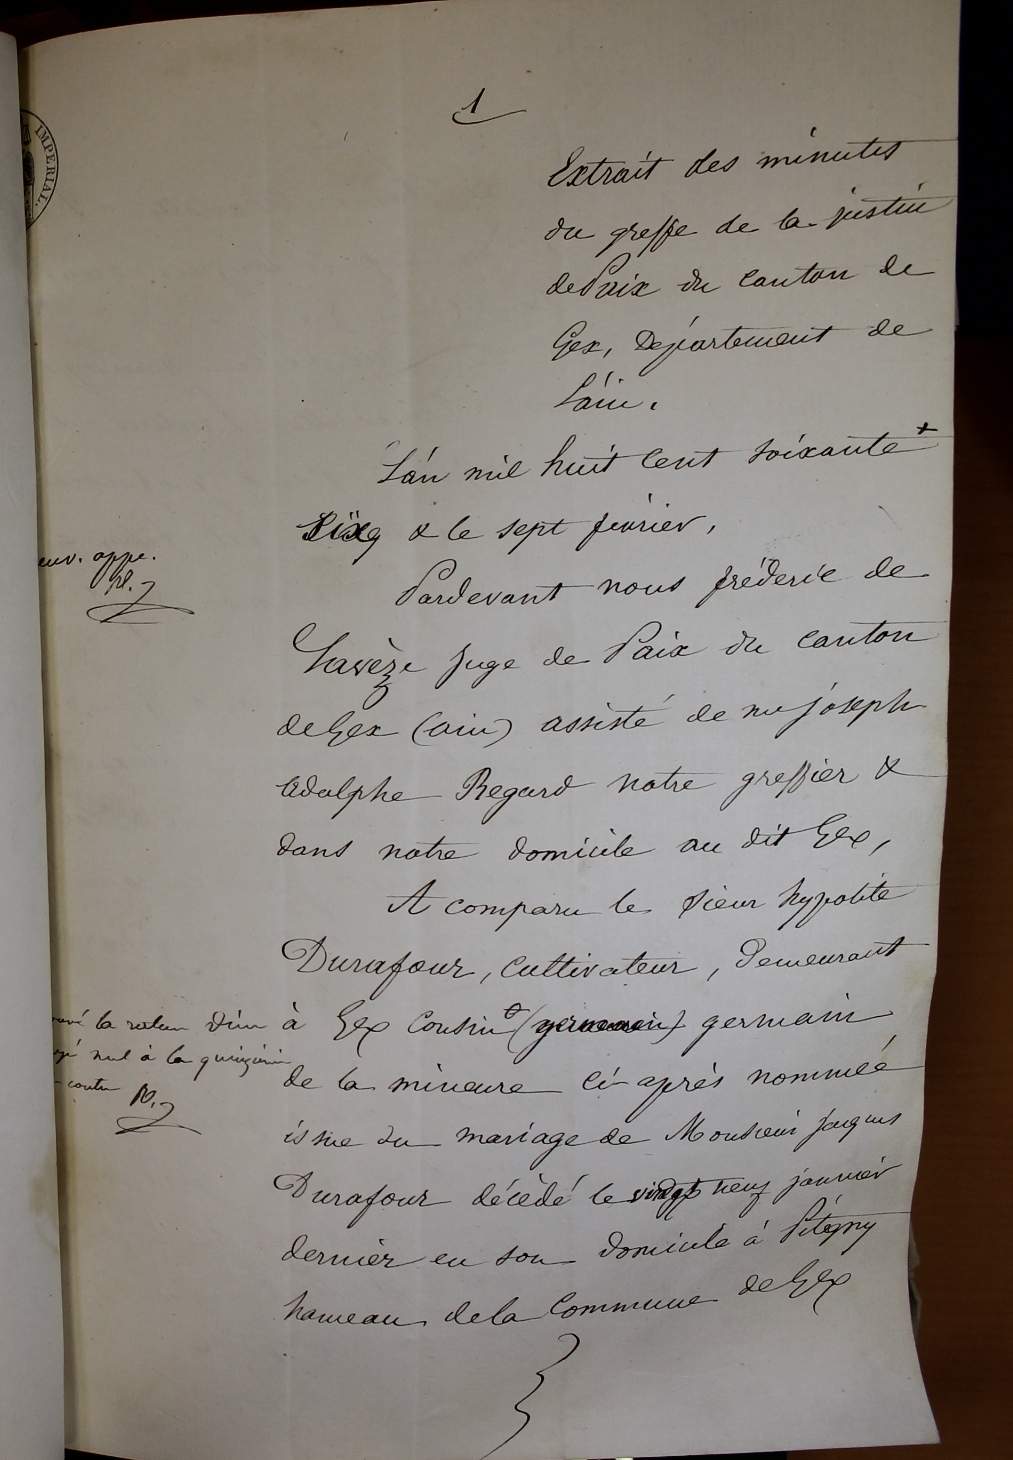 1
IMPERIAL.
Extrait des minutes
du greffe de la justice
de Paix du canton de
Gex, Département de
L'ain.
L'an mil huit cent soixante +
& le sept février,
appr.
Pardevant nous fréderic de
Lavèze Juge de Paix du canton
de Gex (ain) assisté de me joseph
adolphe Regard notre greffier &
dans notre domicile au dit Gex,
A comparu le sieur hypolite
Durafour, cultivateur, demeurant
à Gex cousin (germain) germain
la rature d'un
nul à la quinzième
contre
de la mineure ci-après nommée
issue du mariage de Monsieur jacques
Durafour décédé le vingt neuf janvier
dernier en son domicile à Pitegny
hameau de la Commune de Gex